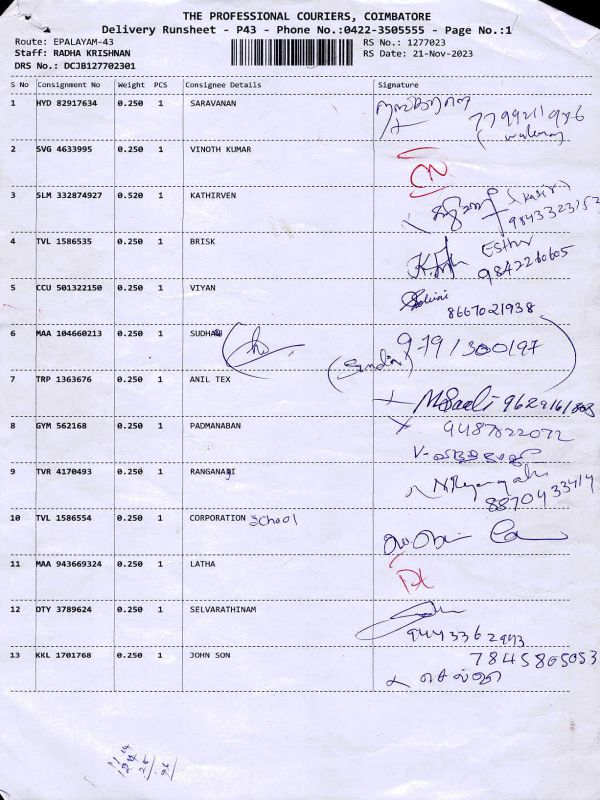 THE PROFESSIONAL COURIERS, COIMBATORE
Delivery Runsheet - P43 - Phone No.:0422-3505555 - Page No.:1
Route: EPALAYAM-43 RS No.: 1277023
Staff: RADHA KRISHNAN RS Date: 21-Nov-2023
DRS No.: DCJB127702301
S No Consignment No Weight PCS Consignee Details Signature
1 HYD 82917634 0.250 1 SARAVANAN
2 SVG 4633995 0.250 1 VINOTH KUMAR
3 SLM 332874927 0.520 1 KATHIRVEN
4 TVL 1586535 0.250 1 BRISK Esther 9842260605
5 CCU 501322150 0.250 1 VIYAN 8667021938
6 MAA 104660213 0.250 1 SUDHAN 9791300197
7 TRP 1363676 0.250 1 ANIL TEX
8 GYM 562168 0.250 1 PADMANABAN 9487022072
9 TVR 4170493 0.250 1 RANGANAJI 8870433414
10 TVL 1586554 0.250 1 CORPORATION School
11 MAA 943669324 0.250 1 LATHA
12 OTY 3789624 0.250 1 SELVARATHINAM 9443362993
13 KKL 1701768 0.250 1 JOHN SON 7845805053